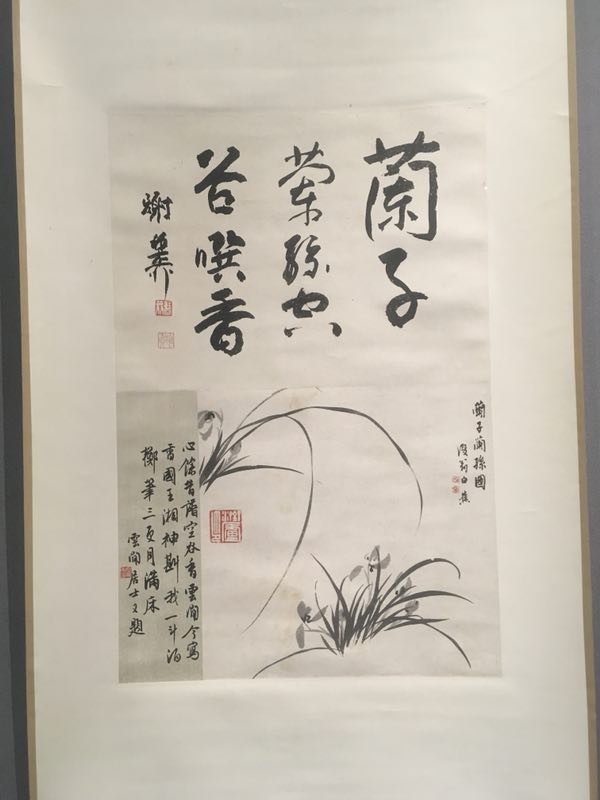 蘭子
蘭孫空
谷噀香
蘭子蘭孫圖
復翁白蕉
心餘昔譜空林香雲間今寫
香國王湘神斟我一斗酒
擲筆三更月滿床
雲間居士又題